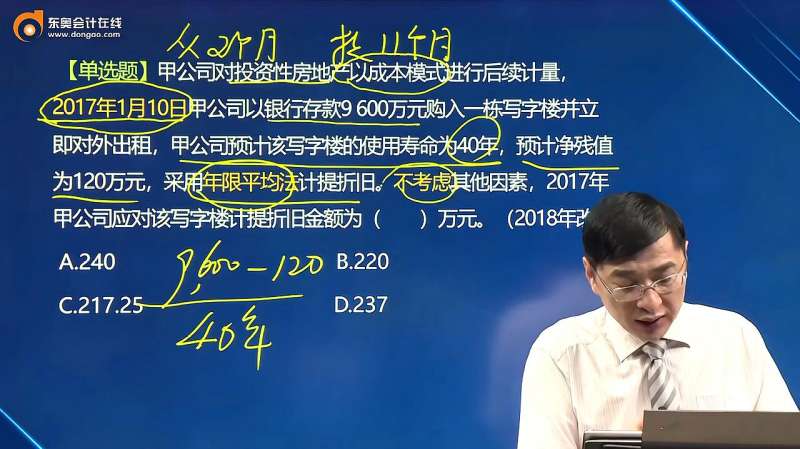 东奥会计在线
www.dongao.com
从2个月 提11个月
【单选题】甲公司对投资性房地产以成本模式进行后续计量，
2017年1月10日甲公司以银行存款9 600万元购入一栋写字楼并立
即对外出租，甲公司预计该写字楼的使用寿命为40年，预计净残值
为120万元，采用年限平均法计提折旧。不考虑其他因素，2017年
甲公司应对该写字楼计提折旧金额为（　　）万元。（2018年改
A.240 B.220
C.217.25 D.237
9,600-120
40年